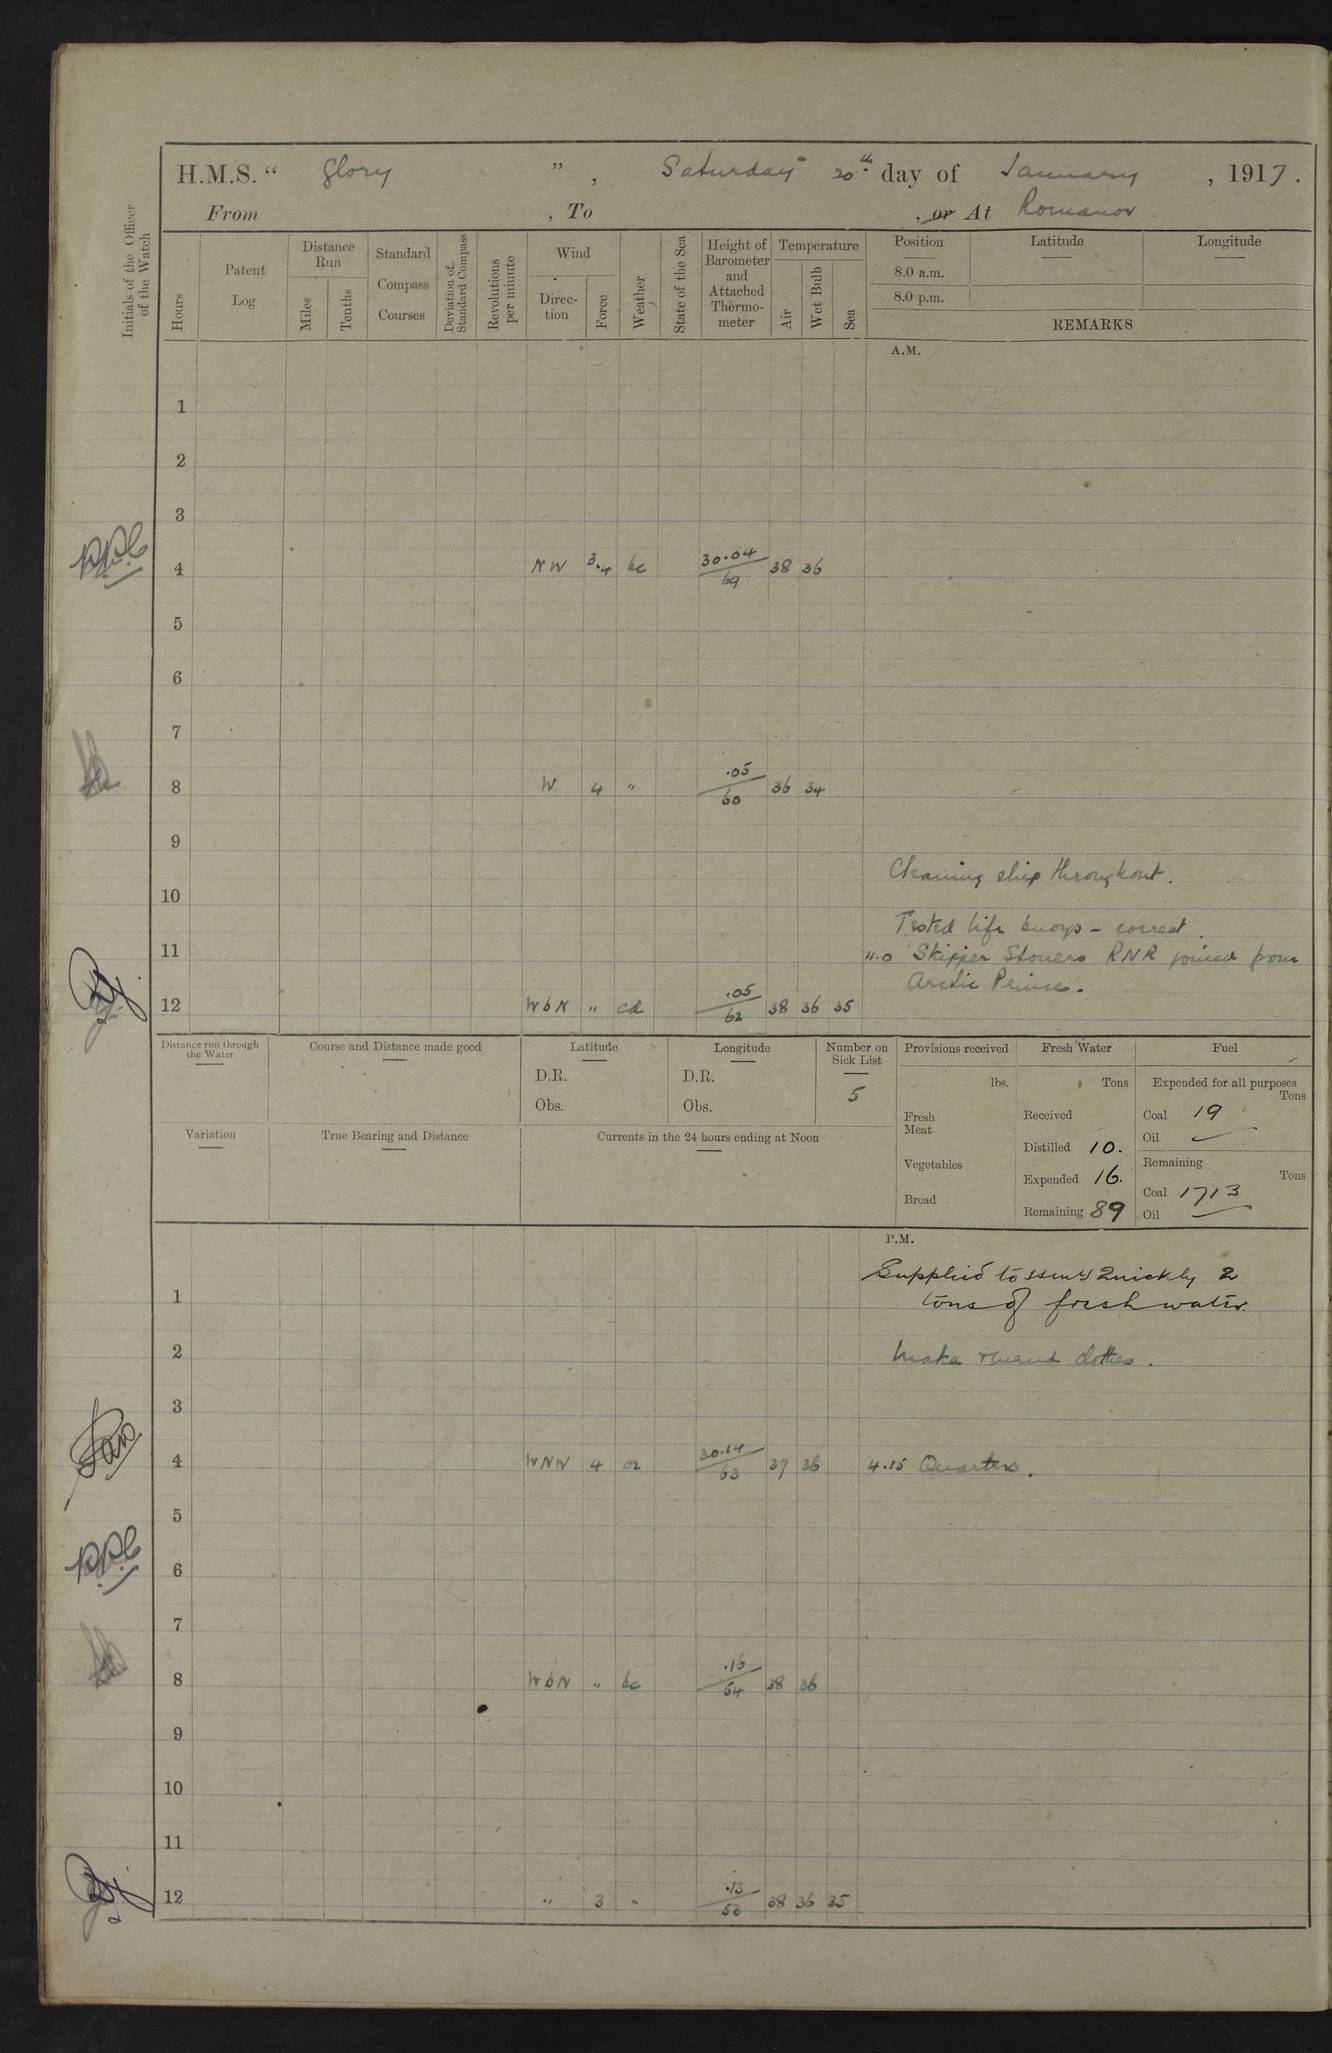 H.M.S. “ Glory ” , Saturday 20th day of January , 1917.
From , To , or At Romanov
Initials of the Officer of the Watch
Hours
Patent Log
Distance Run
Miles
Tenths
Standard Compass Courses
Deviation of Standard Compass
Revolutions per minute
Wind
Direc-tion
Force
Weather
State of the Sea
Height of Barometer and Attached Thermo-meter
Temperature
Air
Wet Bulb
Sea
Position Latitude Longitude
8.0 a.m.
8.0 p.m.
REMARKS
A.M.
1
2
3
4 NW 3.4 bc 30.04/69 38 36
5
6
7
8 W 4 " .05/60 36 34
9
Cleaning ship throughout.
10
Tested life buoys - correct.
11
11.0 Skipper RNR joined from
Arctic Prince.
12 WbN " .05/62 38 36 35
Distance run through the Water
Course and Distance made good
Latitude
D.R.
Obs.
Longitude
D.R.
Obs.
Number on Sick List
5
Variation
True Bearing and Distance
Currents in the 24 hours ending at Noon
Provisions received
lbs.
Fresh Meat
Vegetables
Bread
Fresh Water
Tons
Received
Distilled 10.
Expended 16.
Remaining 89
Fuel
Expended for all purposes
Tons
Coal 19
Oil —
Remaining
Tons
Coal 1713
Oil —
P.M.
Supplied to Quickly 2
1 tons of fresh water.
2 Make & mend clothes.
3
4 WNW 4 30.14/63 37 36 4.15 Quarters.
5
6
7
8 WbN " bc .16/54 38 36
9
10
11
12 " 3 " .13/52 38 36 35